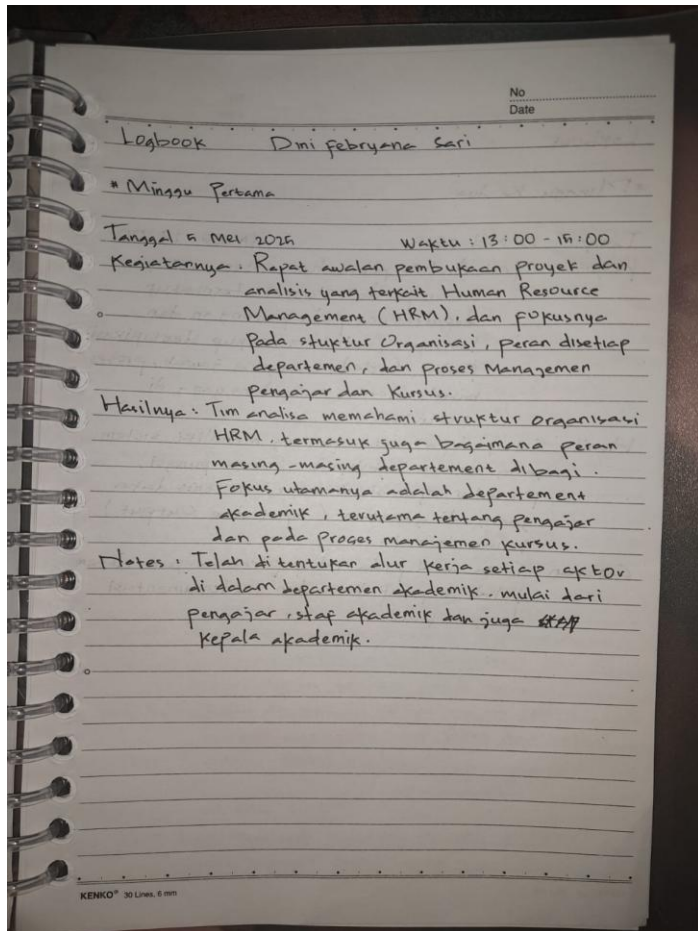 No
Date
Logbook Dini febryana Sari
* Minggu Pertama
Tanggal 5 Mei 2025 Waktu : 13:00 - 15:00
Kegiatannya : Rapat awalan pembukaan proyek dan
analisis yang terkait Human Resource
Management (HRM), dan fokusnya
pada stuktur Organisasi, peran disetiap
departemen, dan proses Manajemen
pengajar dan Kursus.
Hasilnya : Tim analisa memahami struktur organisasi
HRM, termasuk juga bagaimana peran
masing-masing departement dibagi.
Fokus utamanya adalah departement
akademik, terutama tentang pengajar
dan pada Proses manajemen kursus.
Notes : Telah ditentukan alur kerja setiap aktor
di dalam departemen akademik, mulai dari
pengajar, staf akademik dan juga
kepala akademik.
KENKO® 30 Lines, 6 mm